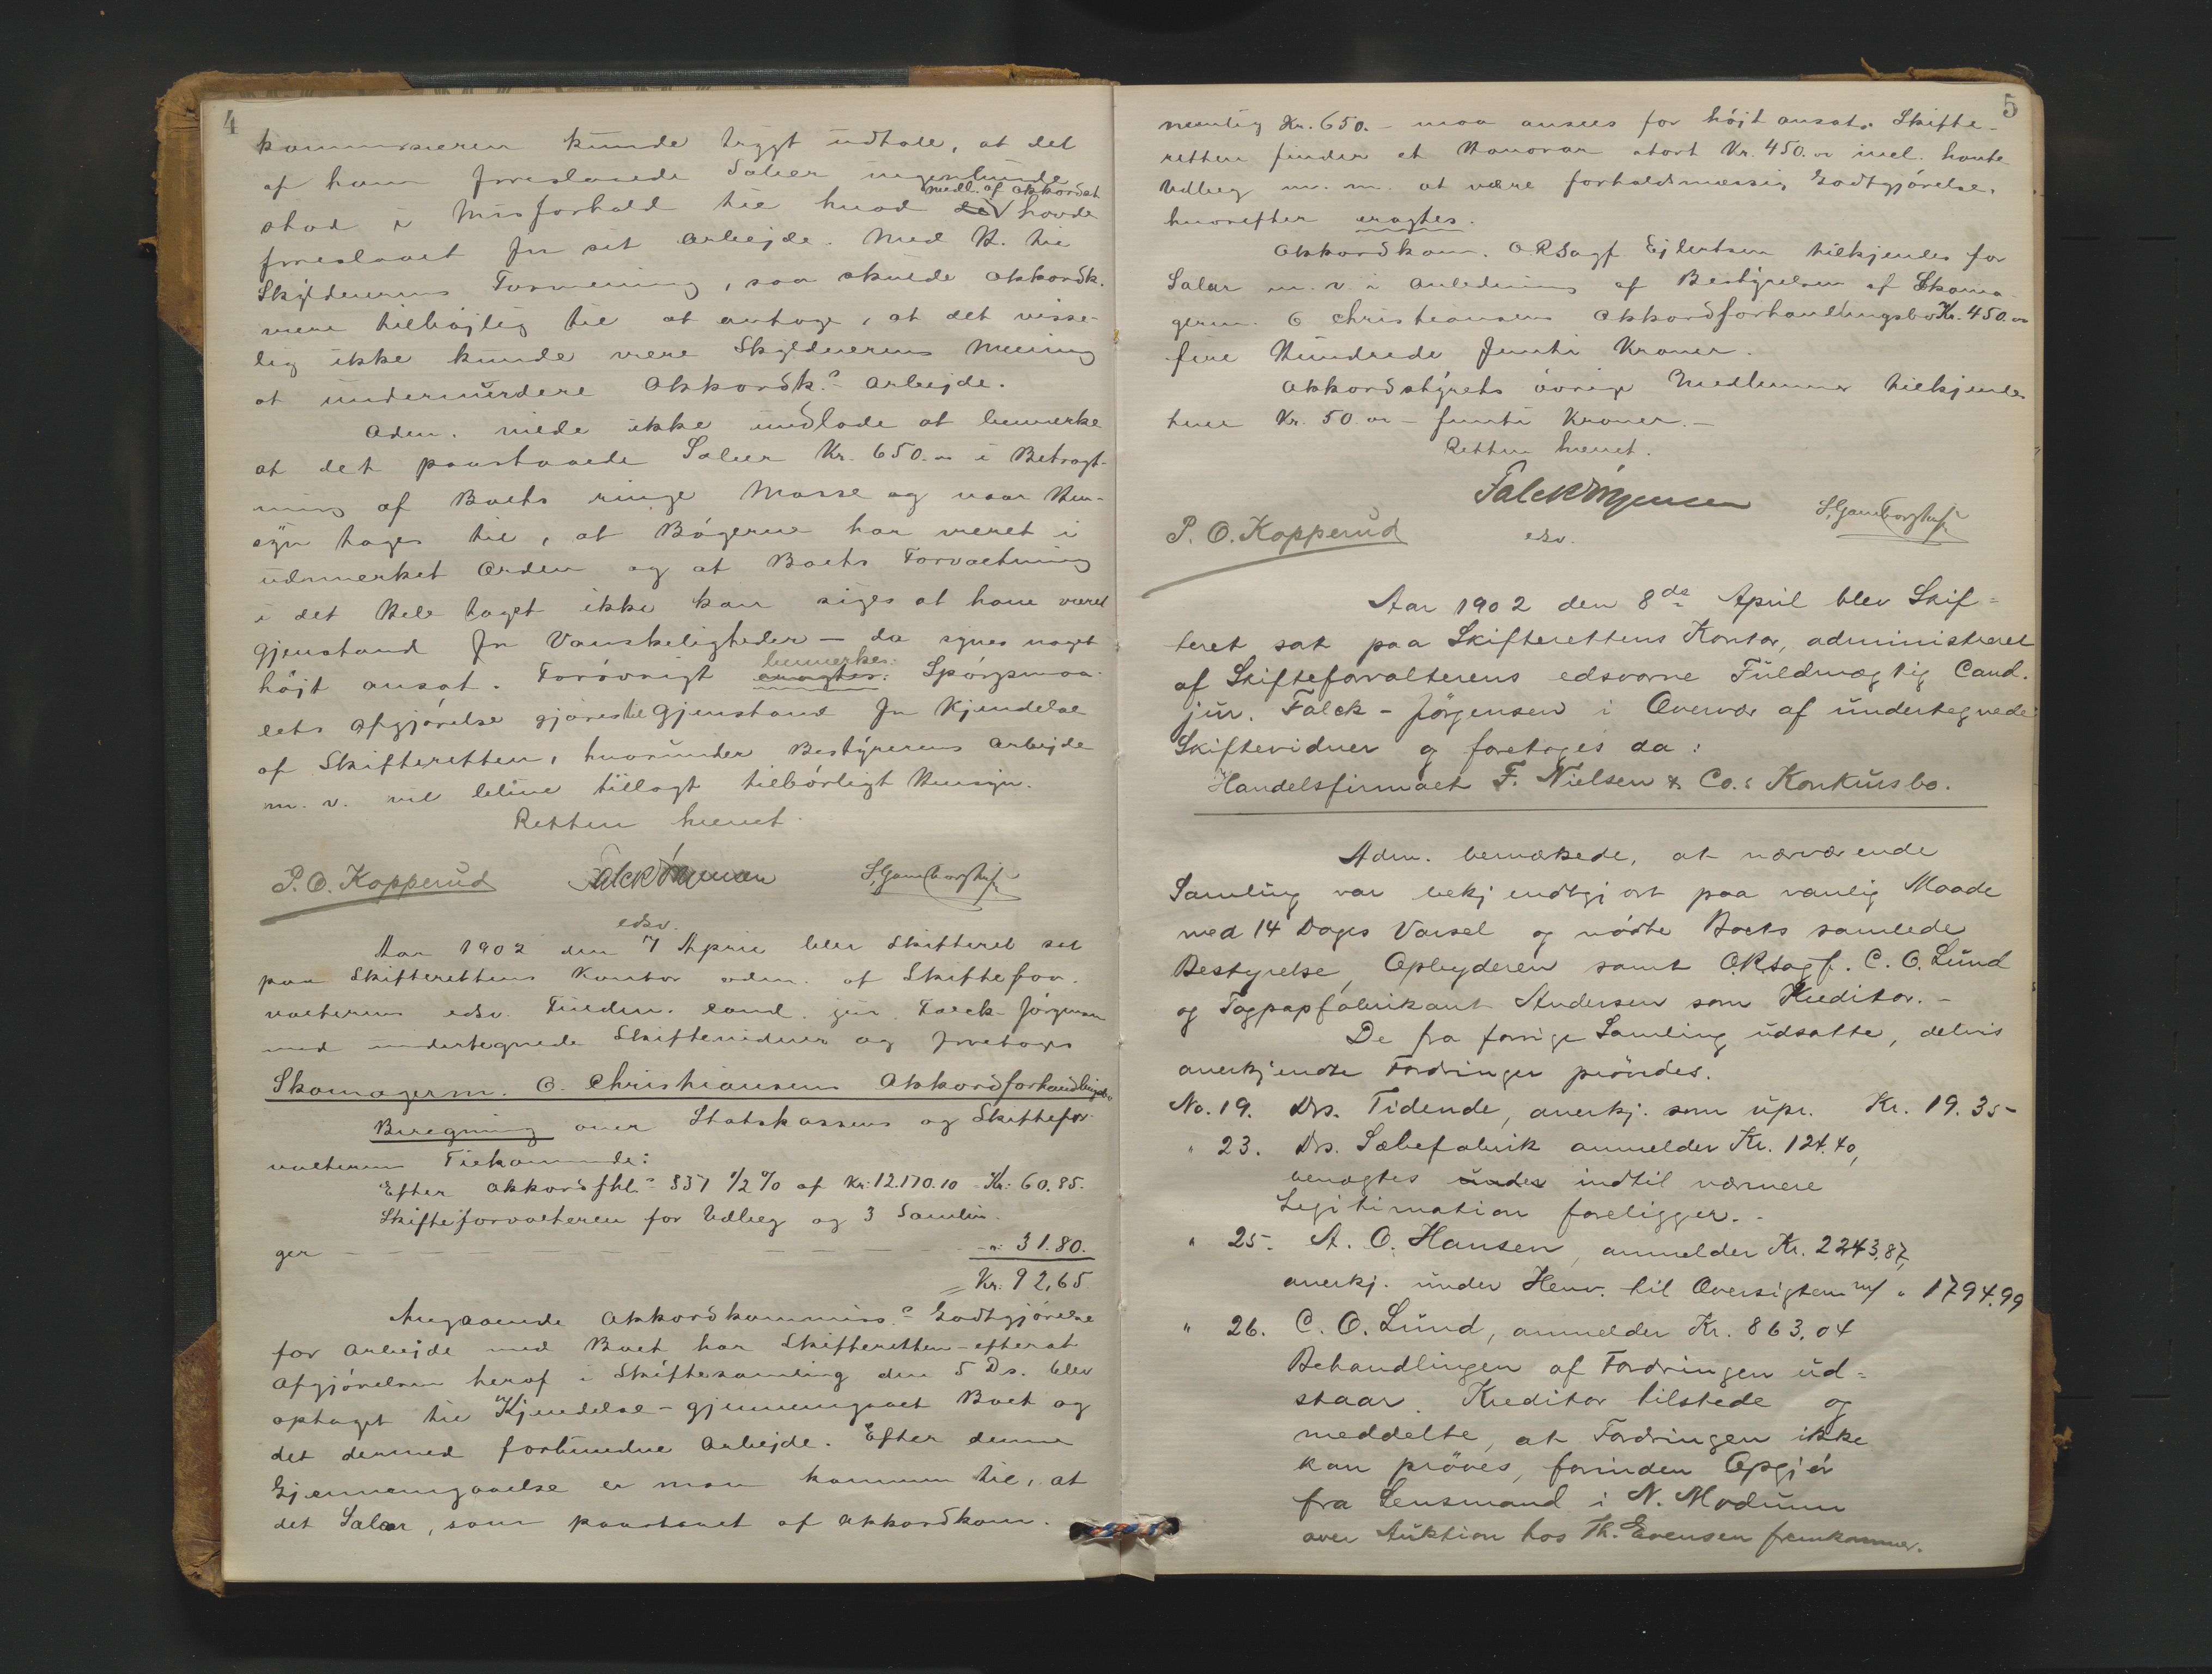 4
kommissæren kunde trygt udtale, at det
af ham foreslaaede Salær ingenlunde
medl. af akkordst.
stod i Misforhold til hvad de havde
foreslaaet for sit Arbejde. Med H. til
Skyldnerens Formening, saa skulde Akkordk.
være tilbøjelig til at antage, at det visse-
lig ikke kunde være Skyldnerens Mening
at undervurdere Akkordk.s Arbejde.
Adm. vilde ikke undlade at bemerke
at det paastaaede Salær Kr. 650.00 i Betragt-
ning af Boets ringe Masse og naar Hen-
syn tages til, at Bøgerne har været i
udmerket Orden og at Boets Forvaltning
i det Hele taget ikke kan siges at have været
Gjenstand for Vanskeligheder – da synes noget
bemerkes:
højt ansat. Forøvrigt eragtes: Spørgsmaa-
lets Afgjørelse gjøres til Gjenstand for Kjendelse
af Skifteretten, hvorunder Bestyrerens Arbejde
m. v. vil blive tillagt tilbørligt Hensyn.
Retten hævet.
P. O. Kopperud Falck Jørgensen
edsv.
Aar 1902 den 7 April blev Skifteret sat
paa Skifterettens Kontor adm. af Skiftefor-
valterens edsv. Fuldm. cand. jur. Falck-Jørgensen
med undertegnede Skiftevidner og foretoges
Skomagerm. O. Christiansens Akkordforhandlingsbo
Beregning over Statskassens og Skiftefor-
valterens Tilkommende:
Efter Akkordfhl.s § 51 1/2 % af Kr. 12.170.10 Kr. 60.85.
Skifteforvalteren for Udlæg og 3 Samlin-
ger – – – – – – – " 31.80.
= Kr. 92,65
Angaaende Akkordkommiss.s Godtgjørelse
for Arbejde med Boet har Skifteretten – efterat
Afgjørelsen heraf i Skiftesamling den 5 Ds. blev
optaget til Kjendelse – gjennemgaaet Boet og
det dermed forbundne Arbejde. Efter denne
Gjennemgaaelse er man kommen til, at
det Salær, som paastaaet af Akkordkom.
5
nemlig Kr. 650.– maa ansees for højt ansat. Skifte-
retten finder et Honorar stort Kr. 450.00 incl. havte
Udlæg m. m. at være forholdsmæssig Godtgjørelse,
hvorefter eragtes.
Akkordkom. ORSagf. Ejlertsen tilkjendes for
Salær m. v. i Anledning af Bestyrelsen af Skoma-
germ. O Christiansens Akkordforhandlingsbo Kr. 450.00
fire Hundrede femti Kroner.
Akkordstyrets øvrige Medlemmer tilkjendes
hver Kr. 50.00 – femti Kroner. –
Retten hævet.
Falck Jørgensen
P. O. Kopperud edsv.
Aar 1902 den 8de April blev Skif=
teret sat paa Skifterettens Kontor, administreret
af Skifteforvalterens edsvorne Fuldmægtig Cand.
jur. Falck-Jørgensen i Overvær af undertegnede
Skiftevidner og foretoges da:
Handelsfirmaet F. Nielsen & Co.s Konkursbo.
Adm. bemærkede, at nærværende
Samling var bekjendtgjort paa vanlig Maade
med 14 Dages Varsel og mødte Boets samlede
Bestyrelse, Opbyderen samt O.R.sagf. C. O. Lund
og Tagpapfabrikant Andersen som Kreditor. –
De fra forrige Samling udsatte, delvis
anerkjendte Fordringer prøvedes.
No. 19. Drs. Tidende, anerkj. som upr. Kr. 19.35
" 23. Drs. Sæbefabrik anmelder Kr. 124.40,
benægtes under indtil nærmere
Legitimation foreligger. –
" 25. A. O. Hansen, anmelder Kr. 2243.87,
anerkj. under Henv. til Oversigten m/ " 1794.99
" 26. C. O. Lund, anmelder Kr. 863.04
Behandlingen af Fordringen ud=
staar. Kreditor tilstede og
meddelte, at Fordringen ikke
kan prøves, forinden Opgjør
fra Lensmand i N. Modum
over Auktion hos Th. Evensen fremkommer.